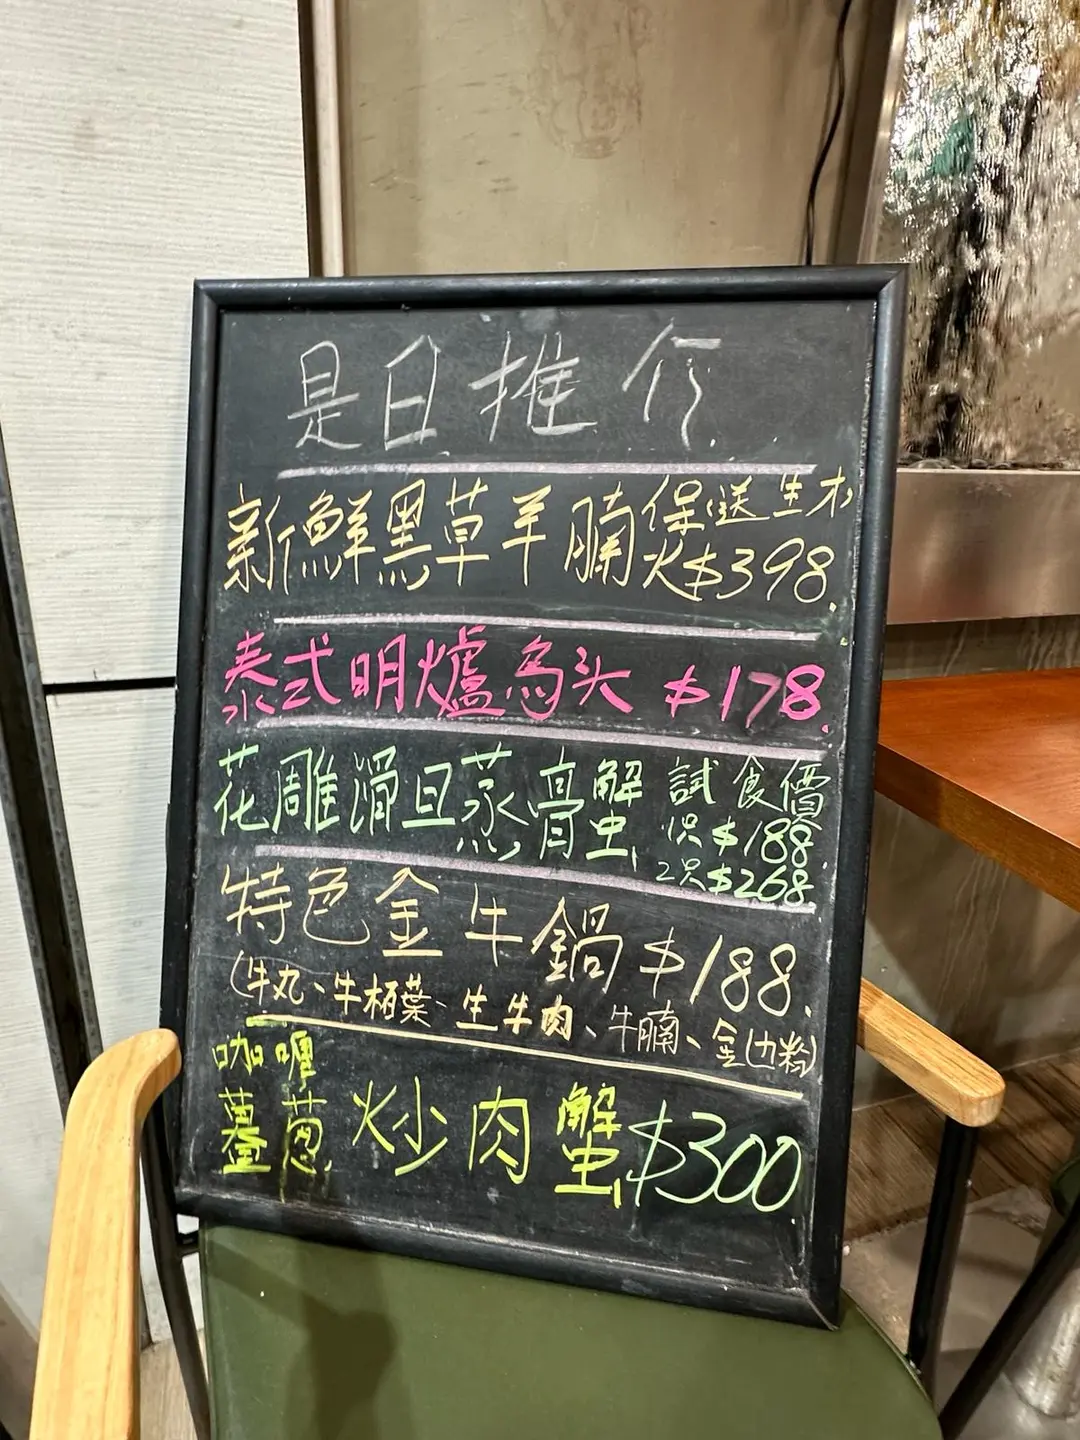 是日推介
新鮮黑草羊腩煲送生木
$398
泰式明爐烏头 $178
花雕滑旦蒸膏蟹 試食價
1只$188
2只$268
特色金牛鍋 $188
(牛丸、牛栢葉、生牛肉、牛腩、金边粉)
咖喱
薑葱 炒肉蟹 $300